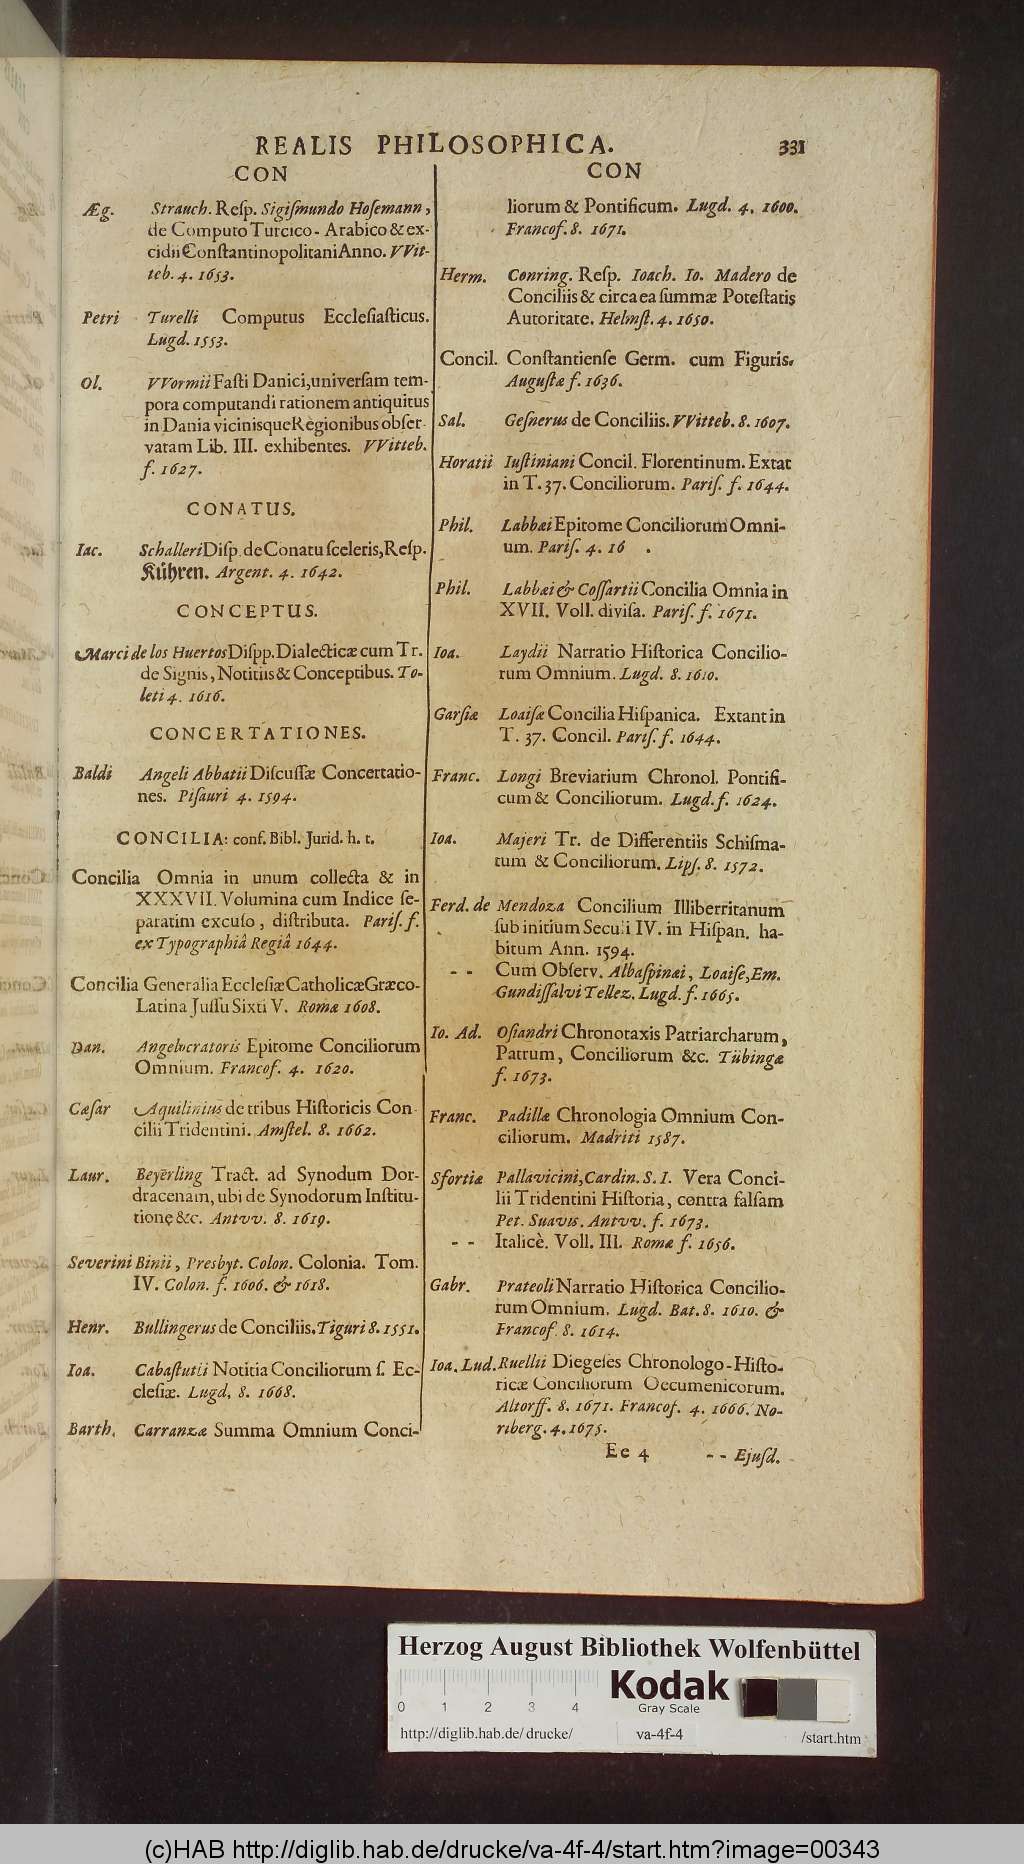 REALIS PHILOSOPHICA. 331
CON
Æg. Strauch. Reſp. Sigiſmundo Hoſemann,
de Computo Turcico-Arabico & ex-
cidii Conſtantinopolitani Anno. VVit-
teb. 4. 1653.
Petri Turelli Computus Eccleſiaſticus.
Lugd. 1553.
Ol. VVormii Faſti Danici, univerſam tem-
pora computandi rationem antiquitus
in Dania vicinisque Regionibus obſer-
vatam Lib. III. exhibentes. VVitteb.
f. 1627.
CONATUS.
Iac. Schalleri Diſp. de Conatu ſceleris, Reſp.
Kühren. Argent. 4. 1642.
CONCEPTUS.
Marci de los Huertos Diſpp. Dialecticæ cum Tr.
de Signis, Notitiis & Conceptibus. To-
leti 4. 1616.
CONCERTATIONES.
Baldi Angeli Abbatii Diſcuſſæ Concertatio-
nes. Piſauri 4. 1594.
CONCILIA: conf. Bibl. Jurid. h. t.
Concilia Omnia in unum collecta & in
XXXVII. Volumina cum Indice ſe-
paratim excuſo, diſtributa. Pariſ. f.
ex Typographiâ Regiâ 1644.
Concilia Generalia Eccleſiæ Catholicæ Græco-
Latina Juſſu Sixti V. Romæ 1608.
Dan. Angelocratoris Epitome Conciliorum
Omnium. Francof. 4. 1620.
Cæſar Aquilinius de tribus Hiſtoricis Con-
cilii Tridentini. Amſtel. 8. 1662.
Laur. Beyerling Tract. ad Synodum Dor-
dracenam, ubi de Synodorum Inſtitu-
tione &c. Antvv. 8. 1619.
Severini Binii, Presbyt. Colon. Colonia. Tom.
IV. Colon. f. 1606. & 1618.
Henr. Bullingerus de Conciliis. Tiguri 8. 1551.
Ioa. Cabaſtutii Notitia Conciliorum ſ. Ec-
cleſiæ. Lugd. 8. 1668.
Barth. Carranzæ Summa Omnium Conci-
CON
liorum & Pontificum. Lugd. 4. 1600.
Francof. 8. 1671.
Herm. Conring. Reſp. Ioach. Io. Madero de
Conciliis & circa ea ſummæ Poteſtatis
Autoritate. Helmſt. 4. 1650.
Concil. Conſtantienſe Germ. cum Figuris.
Auguſtæ f. 1636.
Sal. Geſnerus de Conciliis. VVitteb. 8. 1607.
Horatii Iuſtiniani Concil. Florentinum. Extat
in T. 37. Conciliorum. Pariſ. f. 1644.
Phil. Labbæi Epitome Conciliorum Omni-
um. Pariſ. 4. 16 .
Phil. Labbæi & Coſſartii Concilia Omnia in
XVII. Voll. diviſa. Pariſ. f. 1671.
Ioa. Laydii Narratio Hiſtorica Concilio-
rum Omnium. Lugd. 8. 1610.
Garſiæ Loaiſæ Concilia Hiſpanica. Extant in
T. 37. Concil. Pariſ. f. 1644.
Franc. Longi Breviarium Chronol. Pontifi-
cum & Conciliorum. Lugd. f. 1624.
Ioa. Majeri Tr. de Differentiis Schiſma-
tum & Conciliorum. Lipſ. 8. 1572.
Ferd. de Mendoza Concilium Illiberritanum
ſub initium Seculi IV. in Hiſpan. ha-
bitum Ann. 1594.
- - Cum Obſerv. Albaſpinæi, Loaiſe, Em.
Gundiſſalvi Tellez. Lugd. f. 1665.
Io. Ad. Oſiandri Chronotaxis Patriarcharum,
Patrum, Conciliorum &c. Tübingæ
f. 1673.
Franc. Padillæ Chronologia Omnium Con-
ciliorum. Madriti 1587.
Sfortiæ Pallavicini, Cardin. S. I. Vera Conci-
lii Tridentini Hiſtoria, contra falſam
Pet. Suavis. Antvv. f. 1673.
- - Italicè. Voll. III. Romæ f. 1656.
Gabr. Prateoli Narratio Hiſtorica Concilio-
rum Omnium. Lugd. Bat. 8. 1610. &
Francof. 8. 1614.
Ioa. Lud. Ruellii Diegeſes Chronologo-Hiſto-
ricæ Conciliorum Oecumenicorum.
Altorff. 8. 1671. Francof. 4. 1666. No-
riberg. 4. 1675.
Ee 4 - - Ejuſd.
Herzog August Bibliothek Wolfenbüttel
0 1 2 3 4
Kodak
Gray Scale
http://diglib.hab.de/drucke/ va-4f-4 /start.htm
(c)HAB http://diglib.hab.de/drucke/va-4f-4/start.htm?image=00343